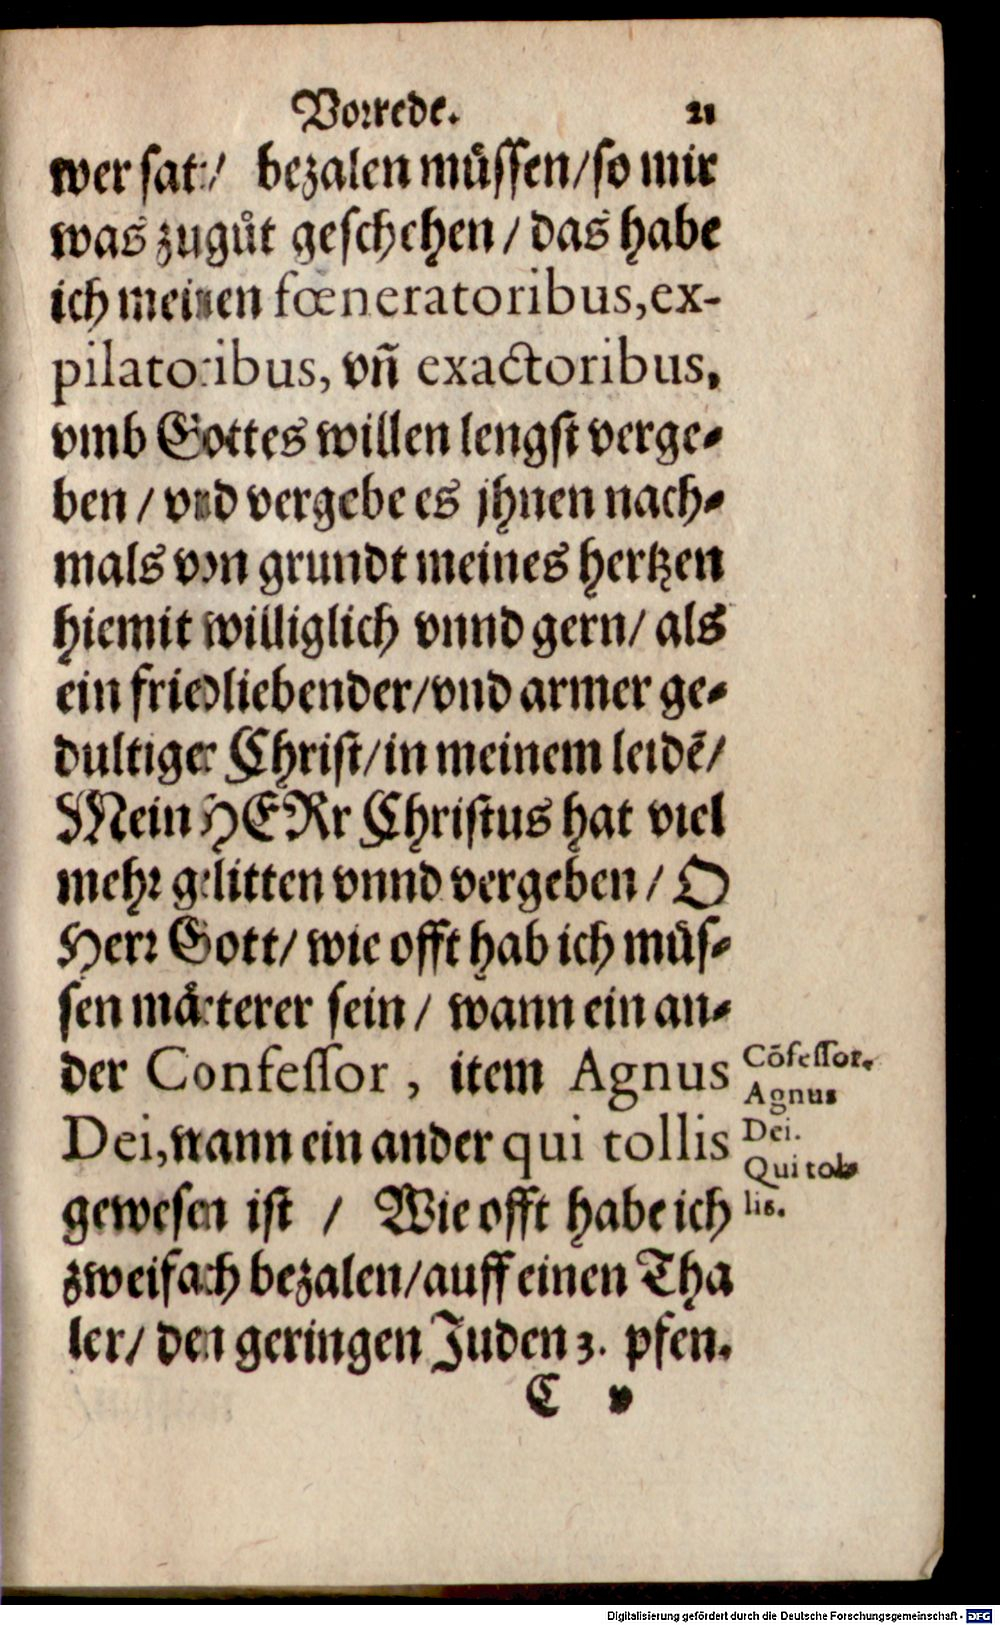 Vorrede. 21
wer sat / bezalen müssen/so mir
was zugůt geschehen / das habe
ich meinen fœneratoribus, ex-
pilatoribus, vñ exactoribus,
vmb Gottes willen lengst verge-
ben / vnd vergebe es jhnen nach-
mals von grundt meines hertzen
hiemit williglich vnnd gern/ als
ein friedliebender/vnd armer ge-
dultiger Christ/in meinem leidẽ/
Mein HERr Christus hat viel
mehr gelitten vnnd vergeben / O
Herr Gott/ wie offt hab ich müs-
sen märterer sein / wann ein an-
der Confessor, item Agnus
Dei, wann ein ander qui tollis
gewesen ist / Wie offt habe ich
zweifach bezalen/auff einen Tha
ler/ den geringen Juden 3. pfen.
C v
Cõfessor.
Agnus
Dei.
Qui tol-
lis.
Digitalisierung gefördert durch die Deutsche Forschungsgemeinschaft - DFG